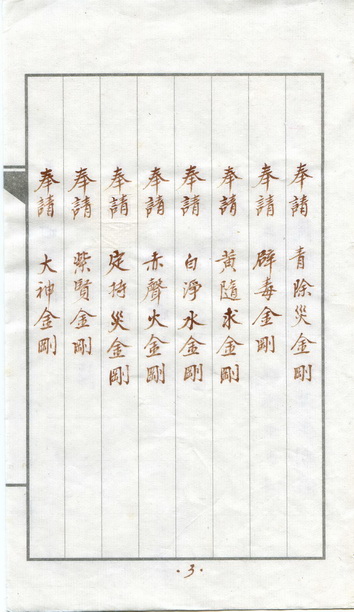 奉請 青除災金剛
奉請 辟毒金剛
奉請 黃隨求金剛
奉請 白淨水金剛
奉請 赤聲火金剛
奉請 定持災金剛
奉請 紫賢金剛
奉請 大神金剛
·3·